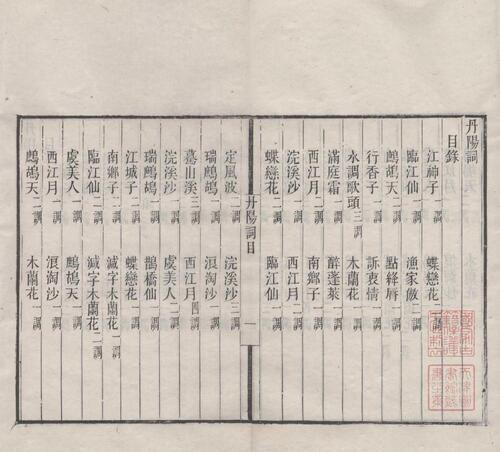 丹陽詞
目錄
江神子一調　蝶戀花二調
臨江仙一調　漁家傲二調
鷓鴣天二調　點絳脣一調
行香子一調　訴衷情一調
水調歌頭三調　木蘭花一調
滿庭霜一調　醉蓬萊一調
西江月一調　南鄉子一調
浣溪沙一調　西江月一調
蝶戀花二調　臨江仙一調
丹陽詞目　一
定風波二調　浣溪沙三調
瑞鷓鴣一調　浪淘沙一調
驀山溪三調　西江月四調
浣溪沙一調　虞美人二調
瑞鷓鴣一調　鵲橋仙一調
江城子二調　蝶戀花一調
南鄉子二調　減字木蘭花一調
臨江仙二調　減字木蘭花二調
虞美人一調　鷓鴣天一調
西江月一調　浪淘沙一調
鷓鴣天二調　木蘭花一調